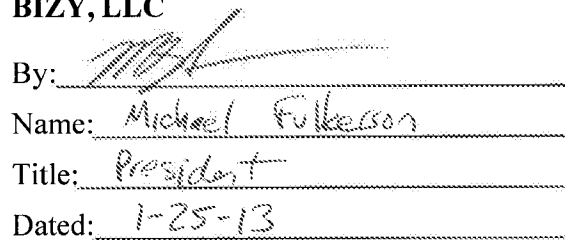 BIZY, LLC
By:
Name: Michael Fulkerson
Title: President
Dated: 1-25-13